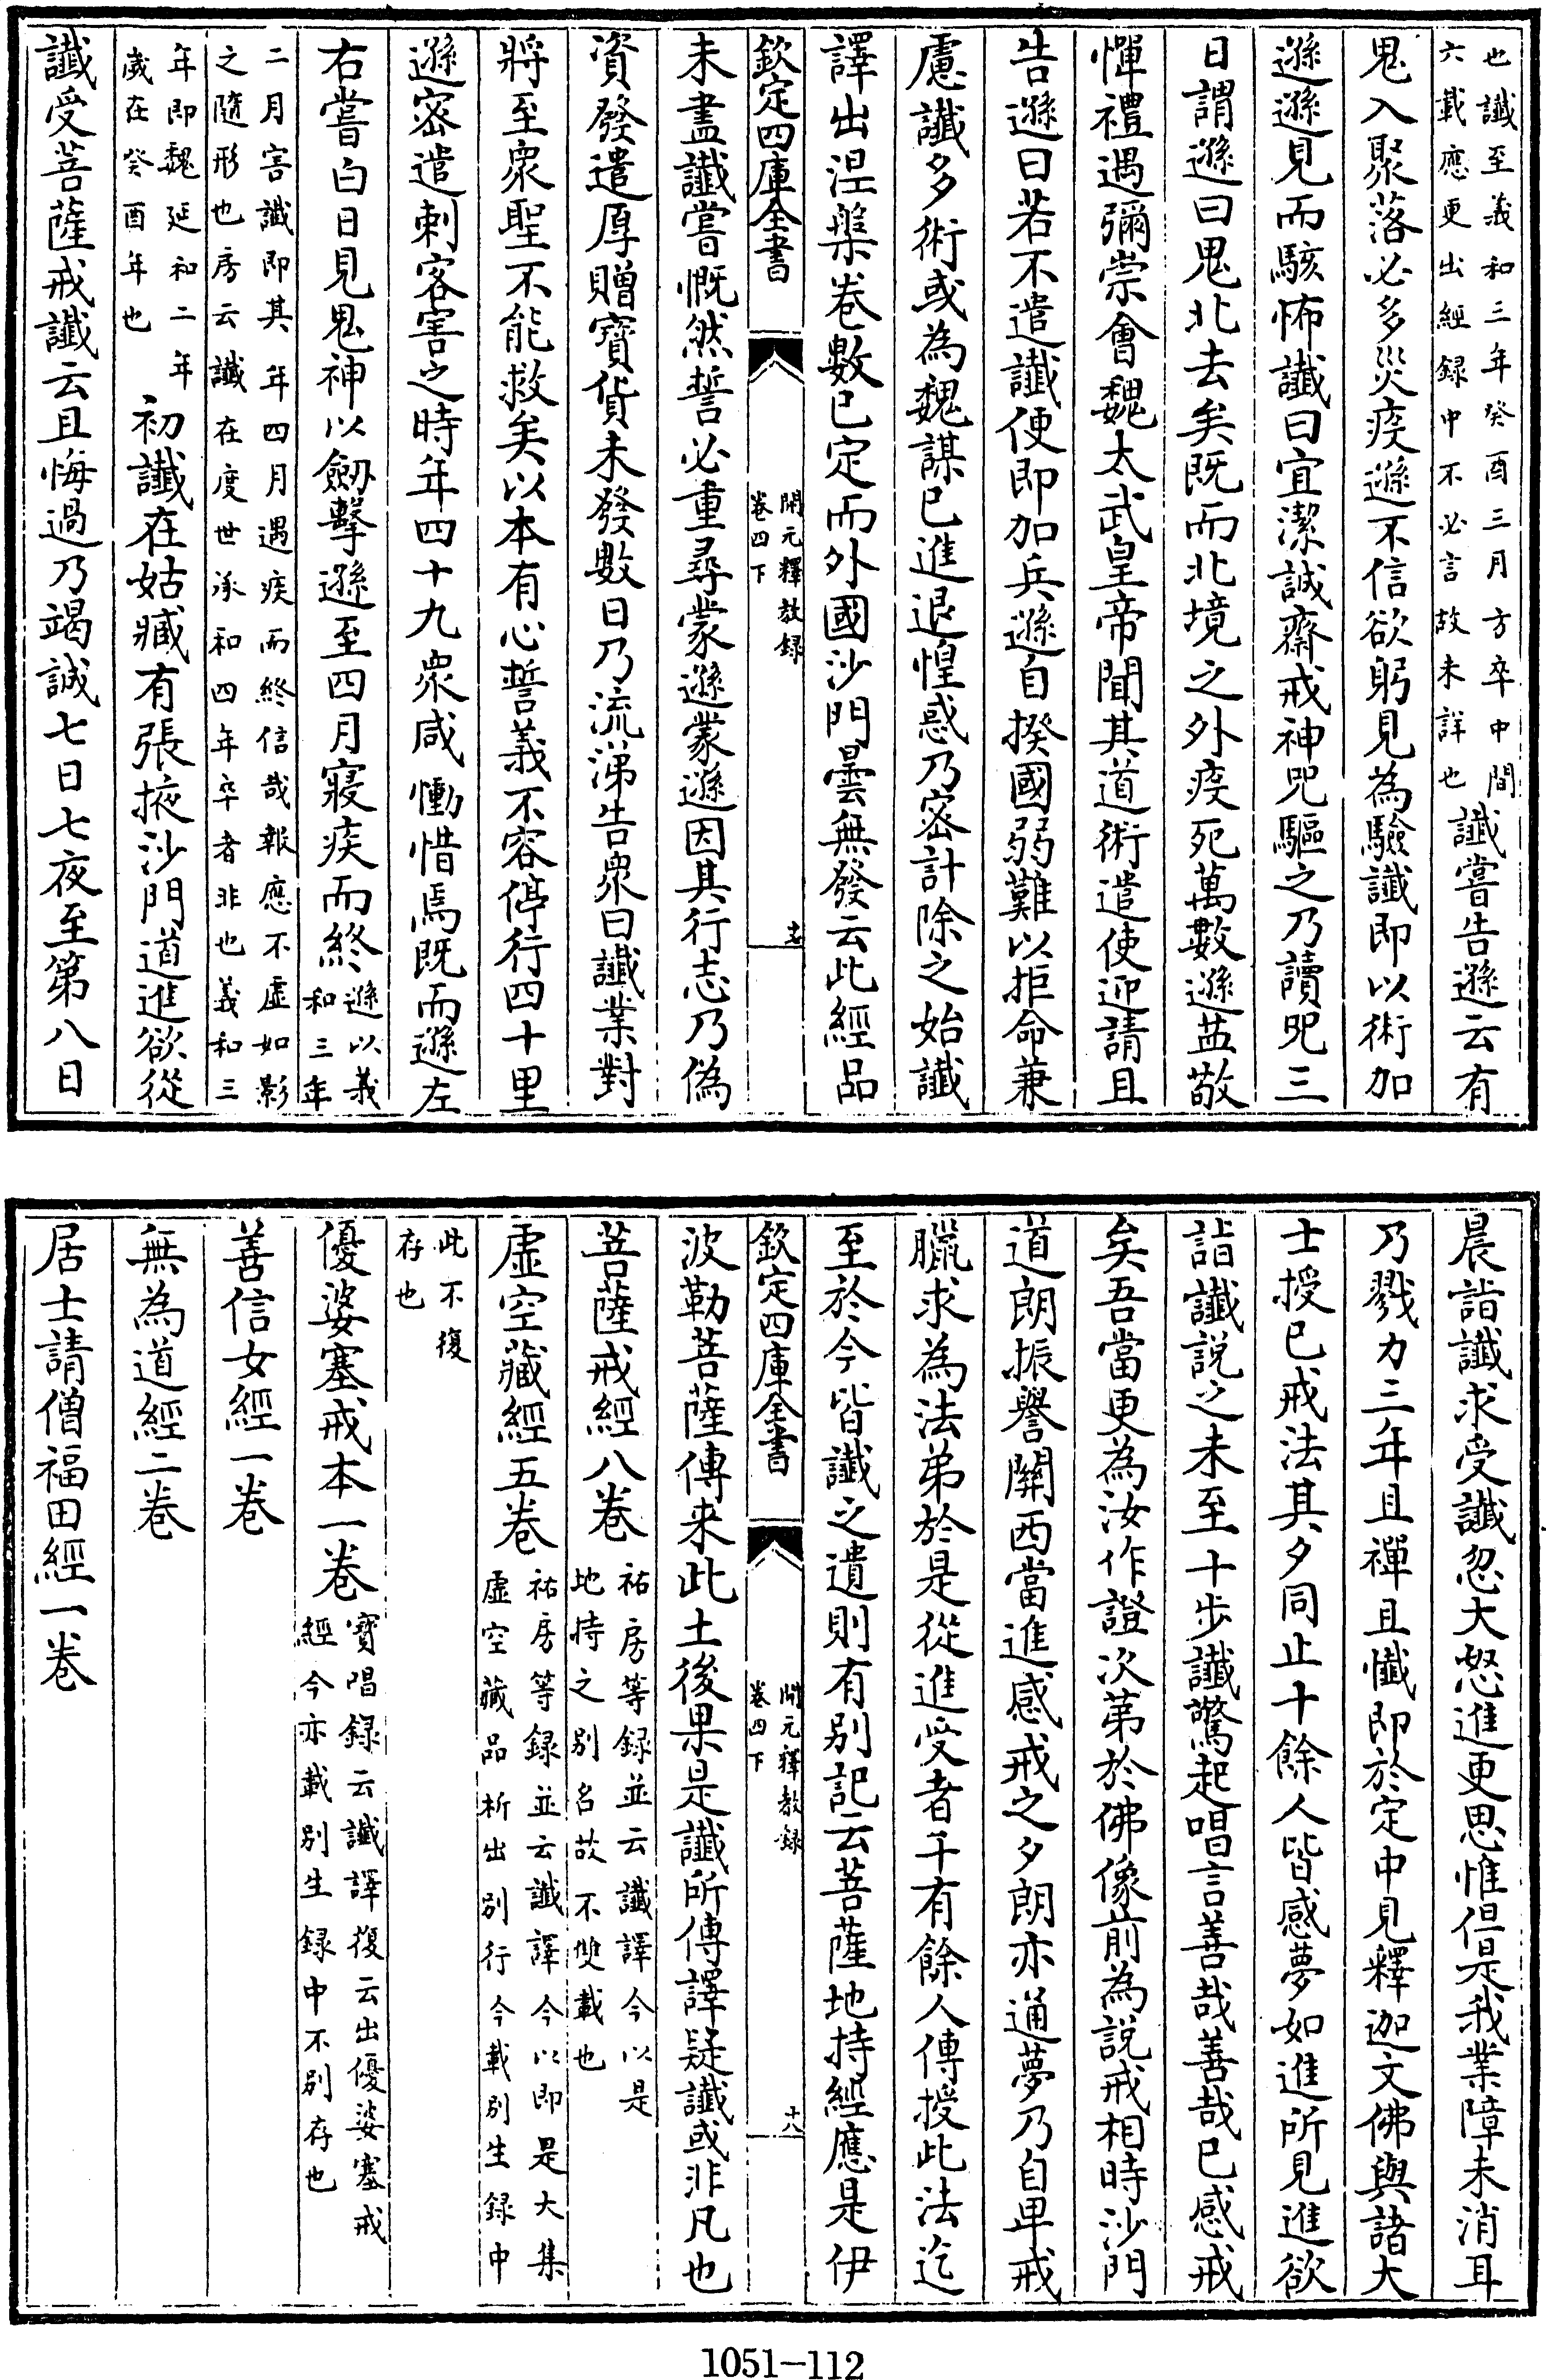 也讖至義和三年癸酉三月方卒中間
六載應更出經録中不必言故未詳也
讖嘗告遜云有
鬼入聚落必多災疫遜不信欲躬見為驗讖即以術加
遜遜見而駭怖讖曰宜潔誠齋戒神呪驅之乃讀呪三
日謂遜曰鬼北去矣既而北境之外疫死萬數遜益敬
憚禮遇彌崇會魏太武皇帝聞其道術遣使迎請且
告遜曰若不遣讖便即加兵遜自揆國弱難以拒命兼
慮讖多術或為魏謀已進退惶惑乃密計除之始讖
譯出涅槃卷數已定而外國沙門曇無發云此經品
欽定四庫全書
開元釋教録
卷四下
十七
未盡讖嘗慨然誓必重尋蒙遜蒙遜因其行志乃偽
資發遣厚贈寶貨未發數日乃流涕告衆曰讖業對
將至衆聖不能救矣以本有心誓義不容停行四十里
遜密遣刺客害之時年四十九衆咸慟惜焉既而遜左
右嘗白日見鬼神以劔擊遜至四月寢疾而終
遜以義
和三年
二月害讖即其年四月遇疾而終信哉報應不虚如影
之隨形也房云讖在度世承和四年卒者非也義和三
年即魏延和二年
歲在癸酉年也
初讖在姑臧有張掖沙門道進欲從
讖受菩薩戒讖云且悔過乃竭誠七日七夜至第八日
晨詣讖求受讖忽大怒進更思惟但是我業障未消耳
乃戮力三年且禪且懺即於定中見釋迦文佛與諸大
士授已戒法其夕同止十餘人皆感夢如進所見進欲
詣讖説之未至十步讖驚起唱言善哉善哉已感戒
矣吾當更為汝作證次第於佛像前為説戒相時沙門
道朗振譽關西當進感戒之夕朗亦通夢乃自卑戒
臘求為法弟於是從進受者千有餘人傳授此法迄
至於今皆讖之遺則有别記云菩薩地持經應是伊
欽定四庫全書
開元釋教録
卷四下
十八
波勒菩薩傳来此土後果是讖所傳譯疑讖或非凡也
菩薩戒經八卷
祐房等録並云讖譯今以是
地持之别名故不雙載也
虚空藏經五卷
祐房等録並云讖譯今以即是大集
虚空藏品析出别行今載别生録中
此不復
存也
優婆塞戒本一卷
寶唱録云讖譯復云出優婆塞戒
經今亦載别生録中不别存也
善信女經一卷
無為道經二卷
居士請僧福田經一卷
1051-112